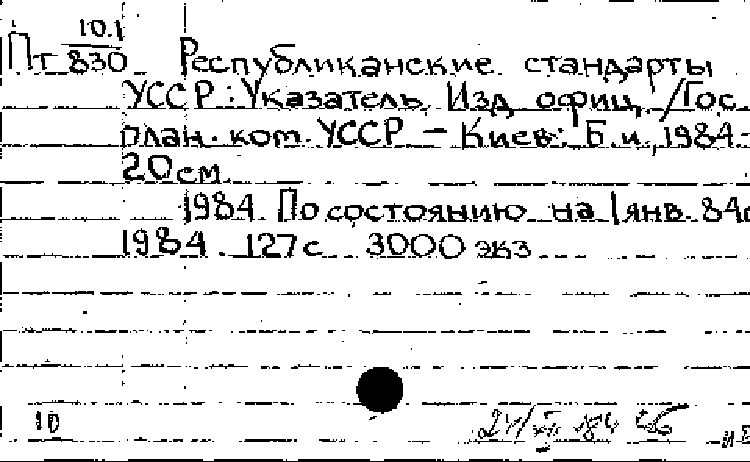 10.1
Пт 830 Республиканские стандарты
УССР : Указатель. Изд. офиц. / Гос.
план. ком. УССР — Киев: Б.и., 1984-
20 см.
1984. По состоянию на 1 янв. 84г
1984. 127 с 3000 экз
10